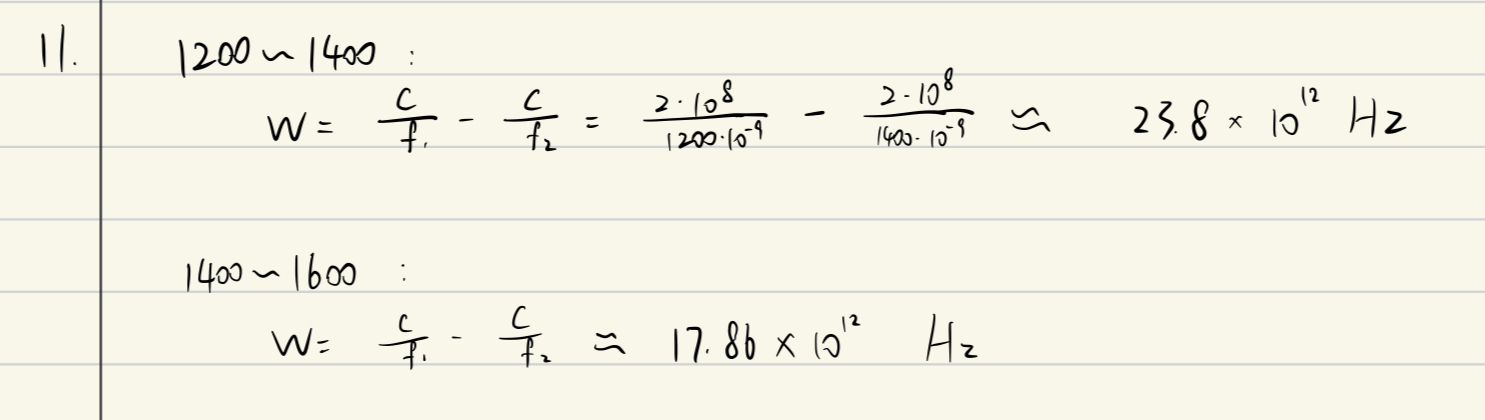 11.
1200 ~ 1400 :
W = C/f₁ - C/f₂ = 2·10⁸/1200·10⁻⁹ - 2·10⁸/1400·10⁻⁹ ≈ 23.8 × 10¹² Hz
1400 ~ 1600 :
W = C/f₁ - C/f₂ ≈ 17.86 × 10¹² Hz